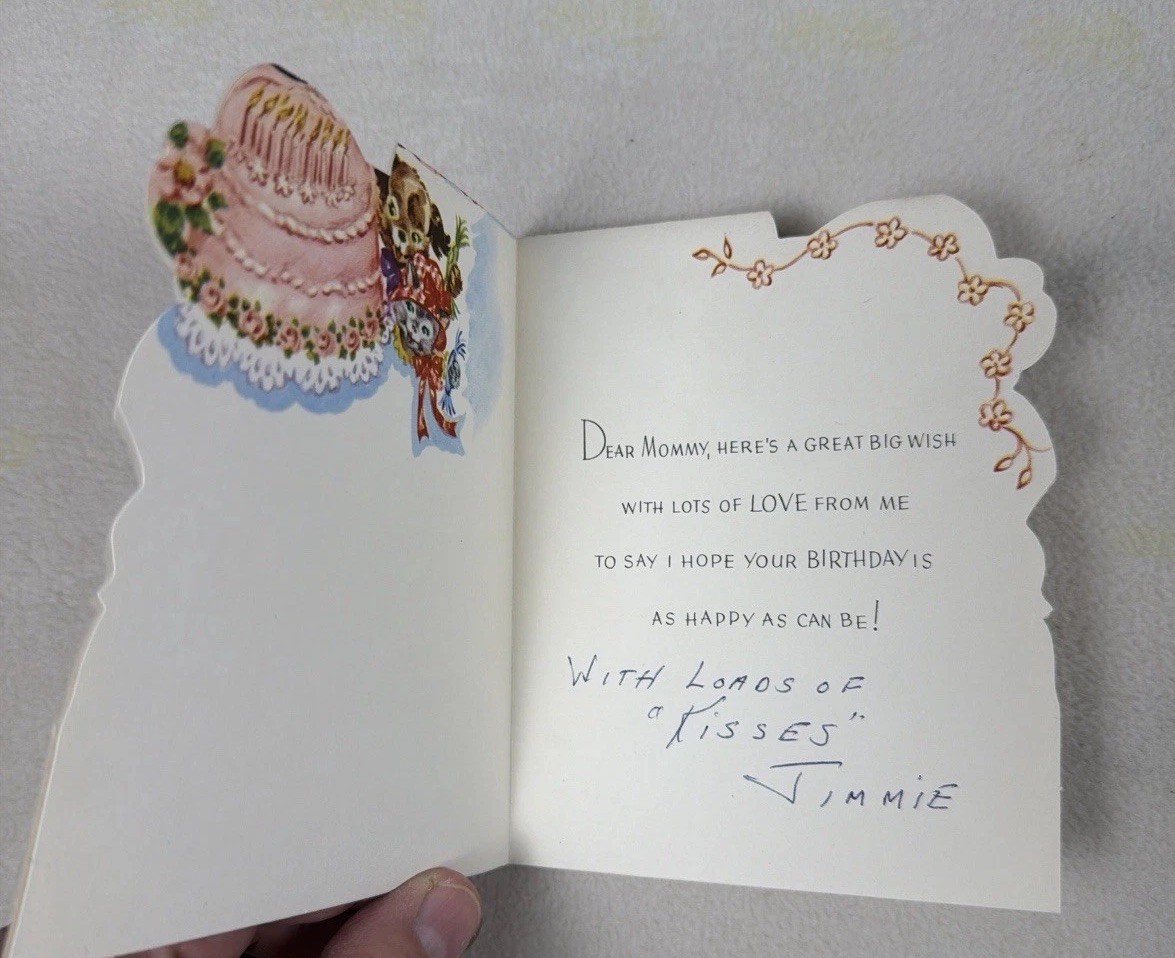 DEAR MOMMY, HERE'S A GREAT BIG WISH
WITH LOTS OF LOVE FROM ME
TO SAY I HOPE YOUR BIRTHDAY IS
AS HAPPY AS CAN BE!
WITH LOADS OF
"KiSSES"
JIMMiE